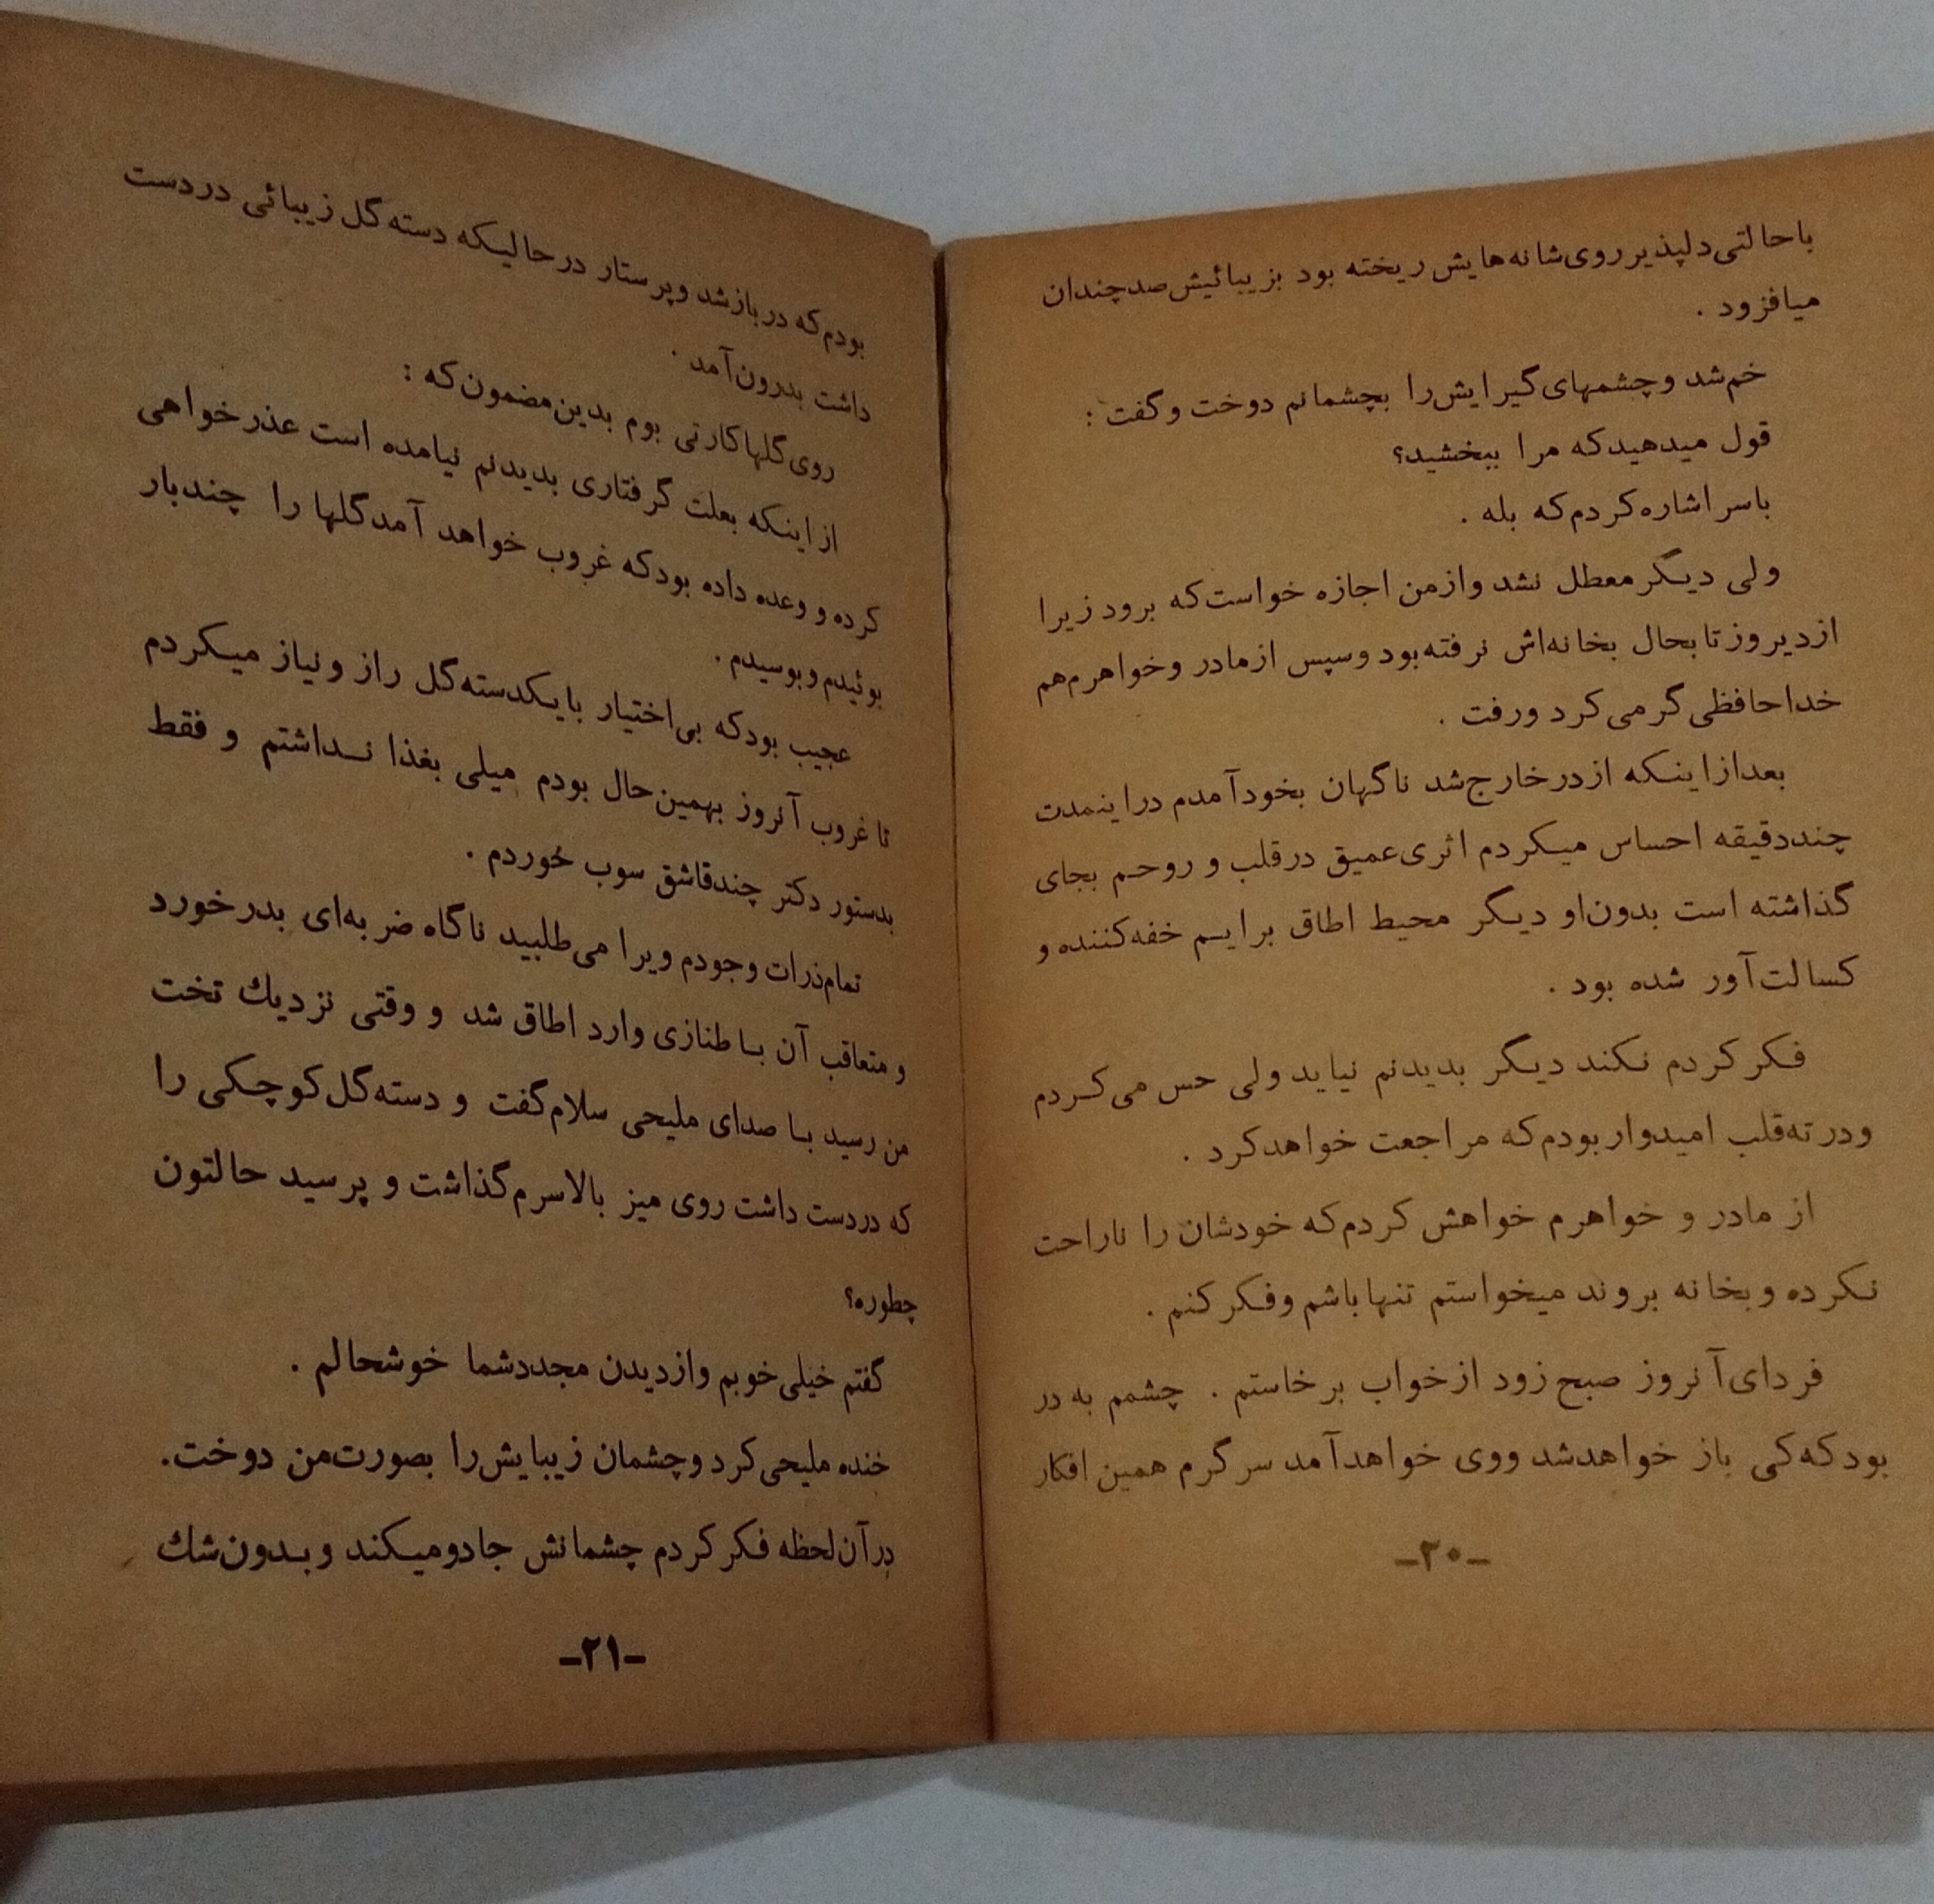 باحالتی دلپذیر روی شانه‌هایش ریخته بود بزیبائیش صدچندان
میافزود .
خم شد و چشمهای گیرایش را بچشمانم دوخت و گفت :
قول میدهید که مرا ببخشید؟
باسر اشاره کردم که بله .
ولی دیگر معطل نشد و ازمن اجازه خواست که برود زیرا
ازدیروز تا بحال بخانه‌اش نرفته بود و سپس ازمادر و خواهرم هم
خداحافظی گرمی کرد و رفت .
بعدازاینکه ازدر خارج شد ناگهان بخود آمدم دراینمدت
چنددقیقه احساس میکردم اثری عمیق درقلب و روحم بجای
گذاشته است بدون او دیگر محیط اطاق برایم خفه‌کننده و
کسالت‌آور شده بود .
فکر کردم نکند دیگر بدیدنم نیاید ولی حس می‌کردم
و در ته‌قلب امیدوار بودم که مراجعت خواهد کرد .
از مادر و خواهرم خواهش کردم که خودشان را ناراحت
نکرده و بخانه بروند میخواستم تنها باشم و فکر کنم .
فردای آنروز صبح زود ازخواب برخاستم . چشمم به در
بود که کی باز خواهدشد ووی خواهدآمد سرگرم همین افکار
-۲۰-
بودم که در بازشد و پرستار درحالیکه دسته گل زیبائی دردست
داشت بدرون آمد .
روی گلها کارتی بوم بدین مضمون که :
ازاینکه بعلت گرفتاری بدیدنم نیامده است عذرخواهی
کرده و وعده داده بود که غروب خواهد آمد گلها را چندبار
بوئیدم و بوسیدم .
عجیب بود که بی‌اختیار بایکدسته گل راز و نیاز میکردم
تا غروب آنروز بهمین حال بودم میلی بغذا نداشتم و فقط
بدستور دکتر چندقاشق سوب خوردم .
تمام ذرات وجودم ویرا می‌طلبید ناگاه ضربه‌ای بدرخورد
و متعاقب آن با طنازی وارد اطاق شد و وقتی نزدیك تخت
من رسید با صدای ملیحی سلام گفت و دسته گل کوچکی را
که دردست داشت روی میز بالاسرم گذاشت و پرسید حالتون
چطوره؟
گفتم خیلی خوبم وازدیدن مجددشما خوشحالم .
خنده ملیحی کرد و چشمان زیبایش را بصورت من دوخت.
درآن لحظه فکر کردم چشمانش جادو میکند و بدون شك
-۲۱-